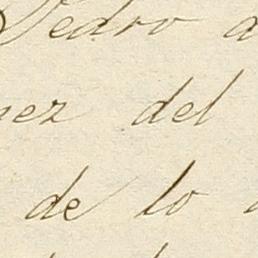 Pedro a
nez del
de lo